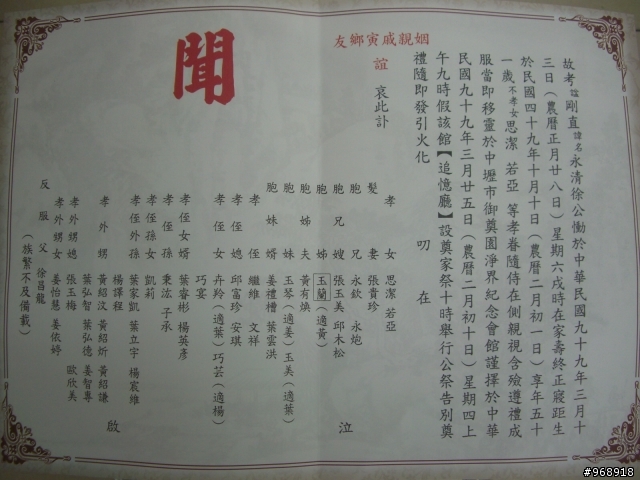 故考諡剛直諱名永清徐公慟於中華民國九十九年三月十
三日（農曆正月廿八日）星期六戌時在家壽終正寢距生
於民國四十九年十月十日（農曆二月初一日）享年五十
一歲不孝女思潔 若亞 等孝眷隨侍在側親視含殮遵禮成
服當即移靈於中壢市御奠園淨界紀念會館謹擇於中華
民國九十九年三月廿五日（農曆二月初十日）星期四上
午九時假該館【追憶廳】設奠家祭十時舉行公祭告別奠
禮隨即發引火化
叨 在
姻親戚寅鄉友
誼 哀此訃
聞
孝女 思潔 若亞
髮妻 張貴珍
胞兄 永欽 永炮
胞兄嫂 張玉美 邱木松
胞姊 玉蘭（適黃）
胞姊夫 黃有煥
胞妹 玉琴（適美）玉美（適葉）
胞妹婿 姜禮槽 葉雲洪
孝侄 繼維 文祥
孝侄媳 邱富珍 安琪
孝侄女 卉羚（適葉）巧芸（適楊）
巧宴
孝侄女婿 葉睿彬 楊英彥
孝侄孫 秉浤 子承
孝侄孫女 凱莉
孝侄外孫 葉家凱 葉立宇 楊宸維
楊譯程
孝外甥 黃紹汶 黃紹炘 黃紹謙
葉弘智 葉弘德 姜智專
孝外甥媳 張玉梅 歐欣美
孝外甥女 姜怡慧 姜依婷
反服父 徐昌龍
泣
啟
（族繁不及備載）
#968918